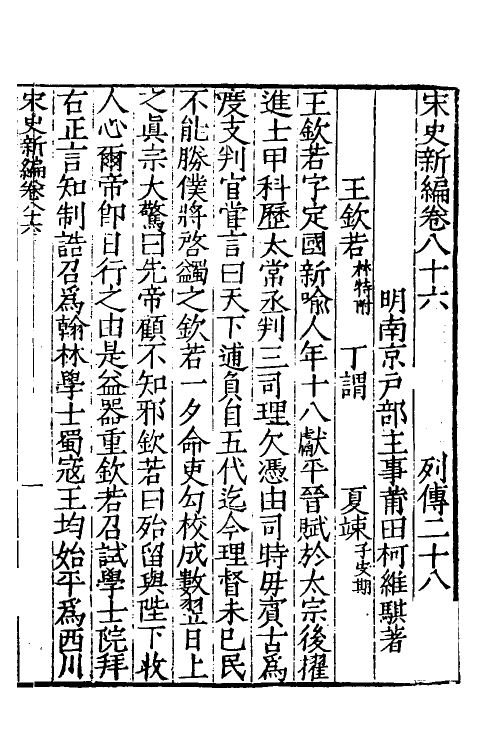 宋史新編卷八十六　列傳二十八
明南京戸部主事莆田柯維騏著
王欽若林特附　丁謂　夏竦子安期
王欽若字定國新喻人年十八獻平晉賦於太宗後擢
進士甲科歷太常丞判三司理欠憑由司時毋賓古爲
度支判官嘗言曰天下逋負自五代迄今理督未已民
不能勝僕將啓蠲之欽若一夕命吏勾校成數翌日上
之眞宗大驚曰先帝顧不知邪欽若曰殆留與陛下收
人心爾帝卽日行之由是益器重欽若召試學士院拜
右正言知制誥召爲翰林學士蜀寇王均始平爲西川
宋史新編卷八六　一